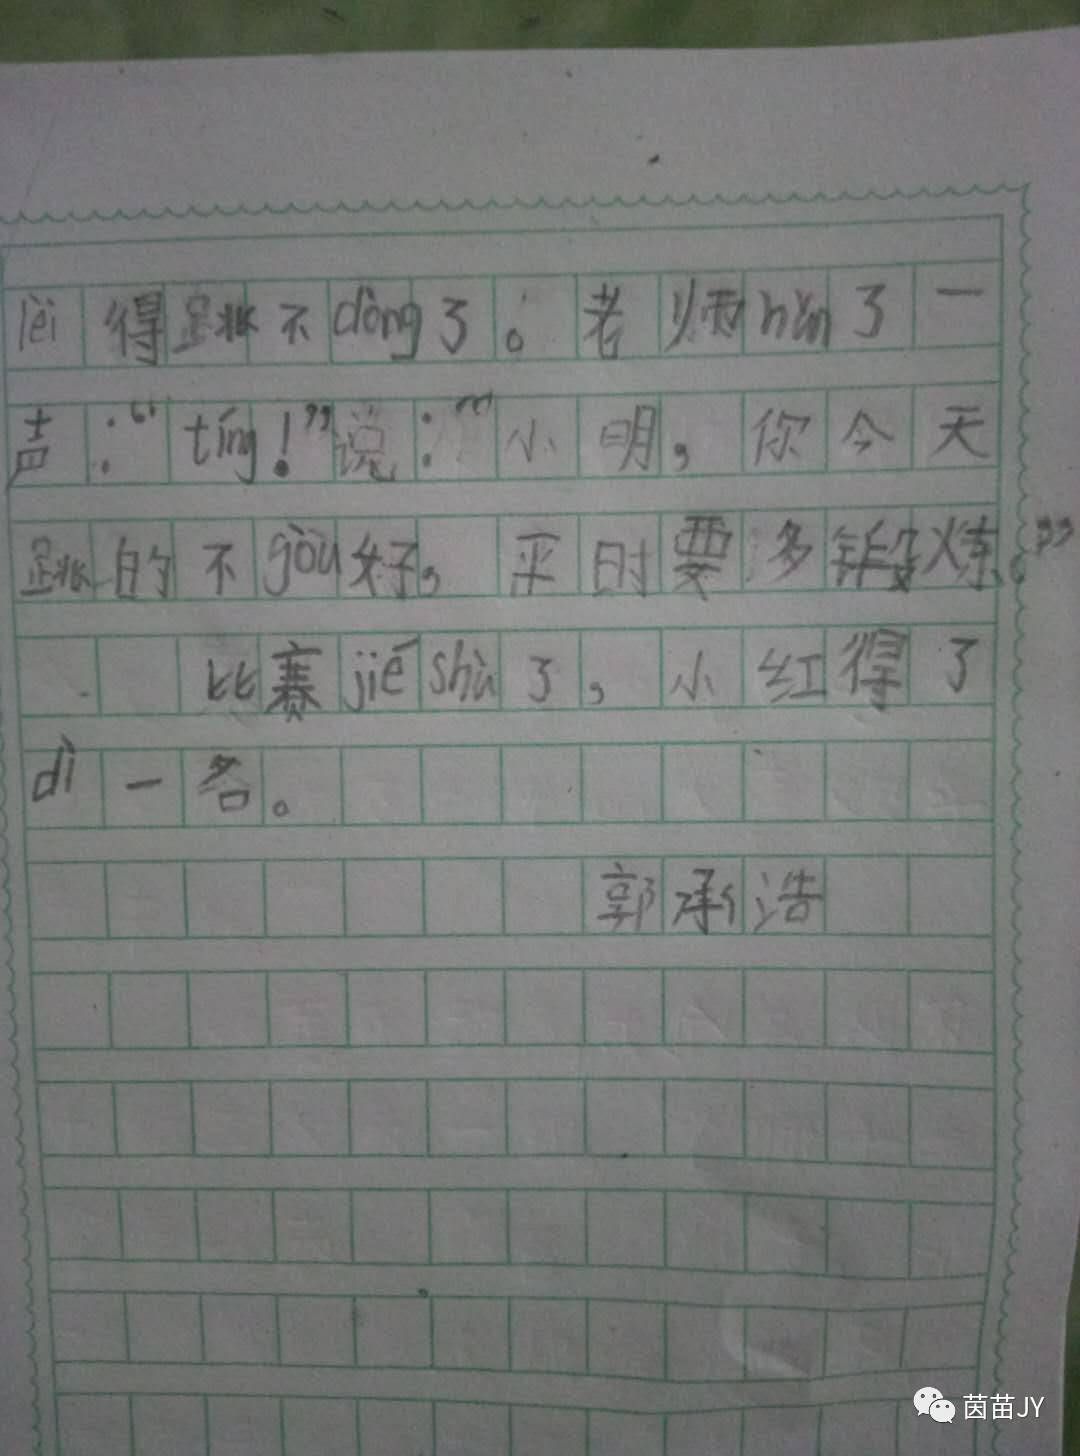 lèi得跳不dòng了。老师hǎn了一
声：“tíng！”说：“小明，你今天
跳的不gòu好，平时要多锻炼。”
比赛jiéshù了，小红得了
dì一名。
郭承浩
茵苗JY